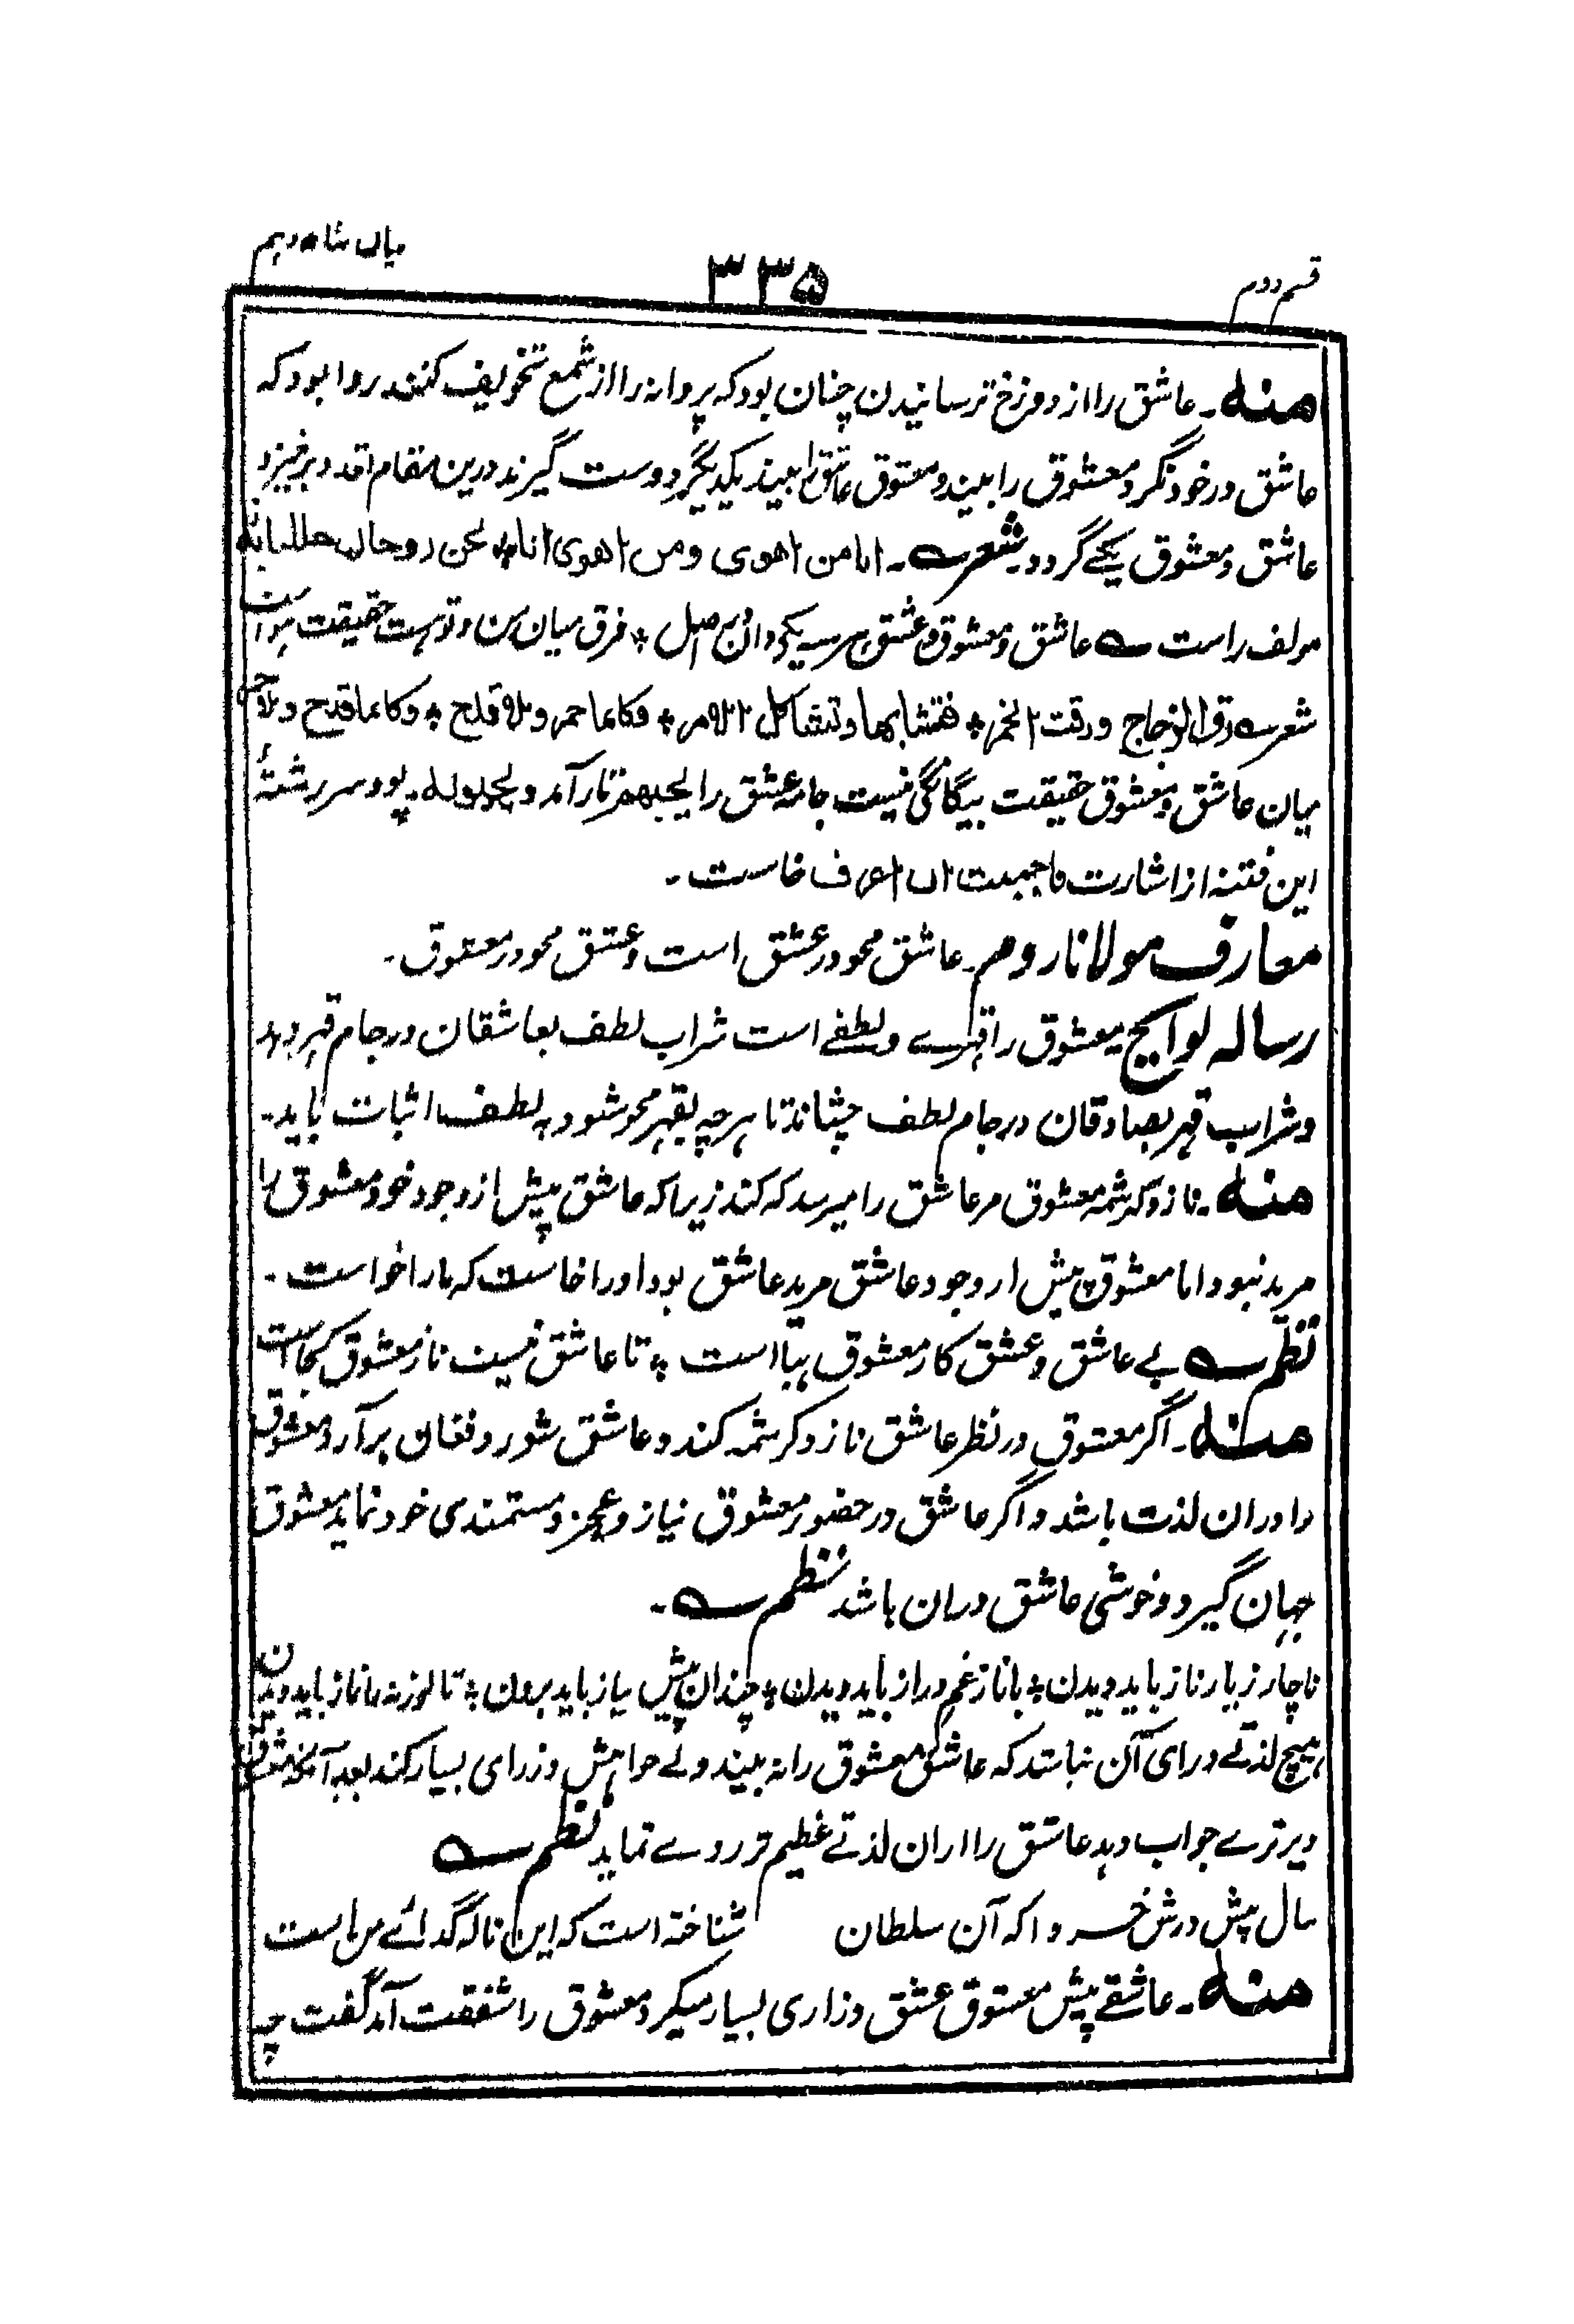 قسم دوم
۳۳۵
میان شانزدهم
منه۔ عاشق را از دوزخ ترسانیدن چنان بود که پروانه را از شمع تخویف کنند روا بود که
عاشق در خود نگرد معشوق را بیند و معشوق عاشق را بیند یکدیگر دوست گیرند درین مقام افتد و برخیزد
عاشق و معشوق یکے گردد۔ شعر۔ انا من اهوی ومن اهوی انا * نحن روحان حللنا بدنا
مولف راست عاشق و معشوق و عشق هر سه یکے دان در اصل * فرق میان من و تو هست حقیقت سواست
شعر رق الزجاج ورقت الخمر * فتشابها وتشاکل الامر * فکانما خمر ولا قدح * وکانما قدح ولا خمر
میان عاشق و معشوق حقیقت بیگانگی نیست جامهٔ عشق را یحبهم تار آمد و یحبونه پود سررشتهٔ
این فتنه از اشارت فاحببت ان اعرف خاست۔
معارف مولانا روم۔ عاشق محو در عشق است و عشق محو در معشوق۔
رساله لوایح معشوق را قهرے و لطفے است شراب لطف بعاشقان در جام قهر دهد
و شراب قهر بصادقان در جام لطف چشاند تا هر چه بقهر محو شود به لطف اثبات یابد۔
منه۔ ناز و کرشمه معشوق مر عاشق را میرسد که کند زیرا که عاشق پیش از وجود خود معشوق را
مرید نبود اما معشوق پیش از وجود عاشق مرید عاشق بود او را خاست که ما را خواست۔
نظم بے عاشق و عشق کار معشوق هبا است * تا عاشق نیست ناز معشوق کجا است
منه۔ اگر معشوق در نظر عاشق ناز و کرشمه کند و عاشق شور و فغان برآرد معشوق
را دران لذت باشد و اگر عاشق در حضور معشوق نیاز و عجز و مستمندی خود نماید معشوق
جهان گیرد و خوشی عاشق دران باشد نظم۔
ناچار ز یار ناز باید دیدن * با ناز غم دراز باید دیدن * چندان پیش نیاز باید بردن * تا ناز باید دیدن
هیچ لذتے ورای آن نباشد که عاشق معشوق را نه بیند ولے خواهش و زاری بسیار کند بعد آنکه معشوق
دیرترے جواب دهد عاشق را ازان لذتے عظیم تر روے نماید نظم
سال پیش درش خسروا که آن سلطان شناخته است که این ناله گدائے من است
منه۔ عاشقے پیش معشوق عشق و زاری بسیار میکرد معشوق را شفقت آمد گفت چه